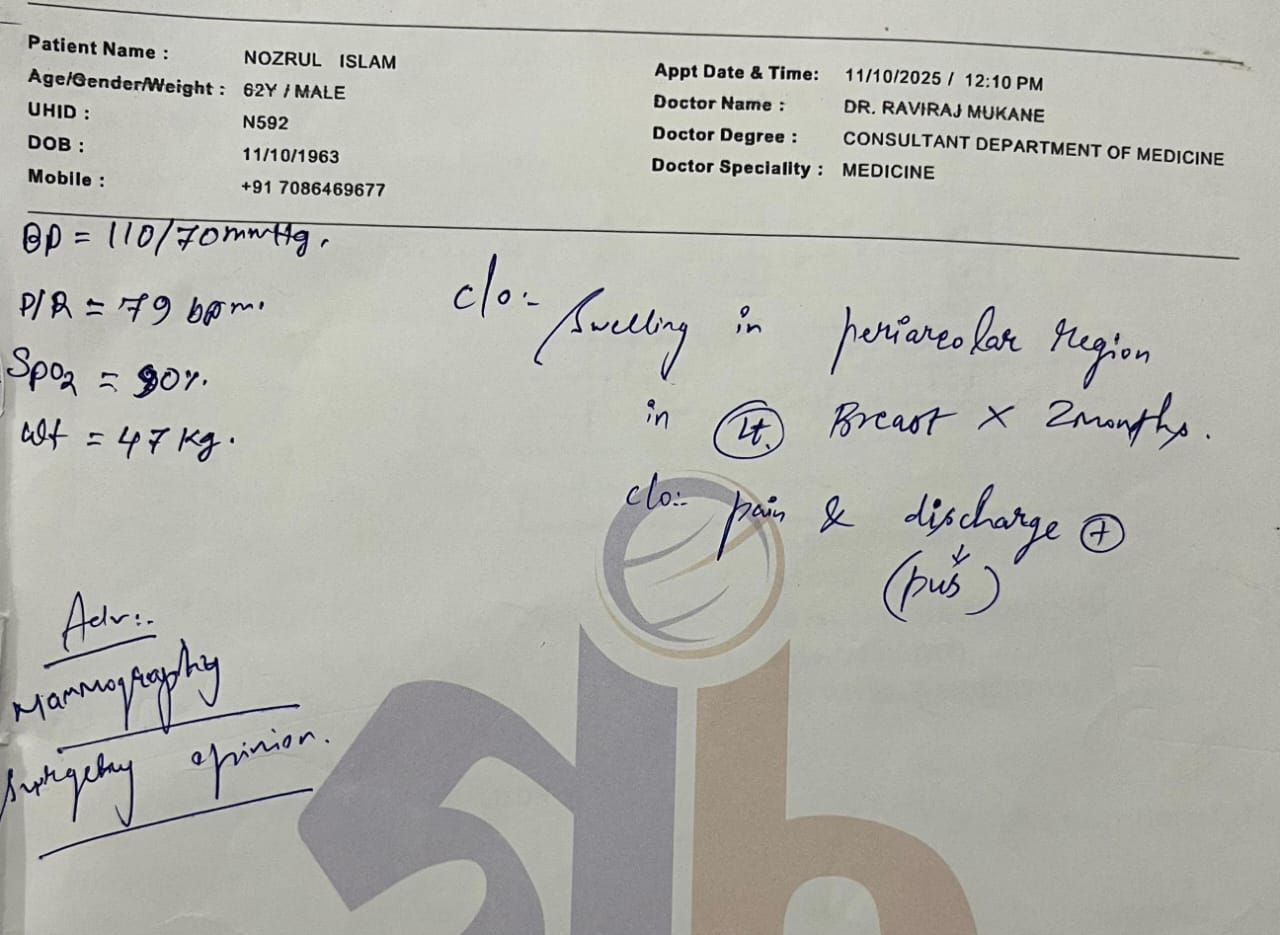 Patient Name : NOZRUL ISLAM
Age/Gender/Weight : 62Y / MALE
UHID : N592
DOB : 11/10/1963
Mobile : +91 7086469677
Appt Date & Time: 11/10/2025 / 12:10 PM
Doctor Name : DR. RAVIRAJ MUKANE
Doctor Degree : CONSULTANT DEPARTMENT OF MEDICINE
Doctor Speciality : MEDICINE
BP = 110/70mmHg.
P/R = 79 bpm.
SpO2 = 90%.
Wt = 47 Kg.
c/o:- Swelling in periareolar region
in Lt. Breast X 2months.
c/o:- pain & discharge +
↓
(pus)
Adv:-
Mammography
Surgery opinion.